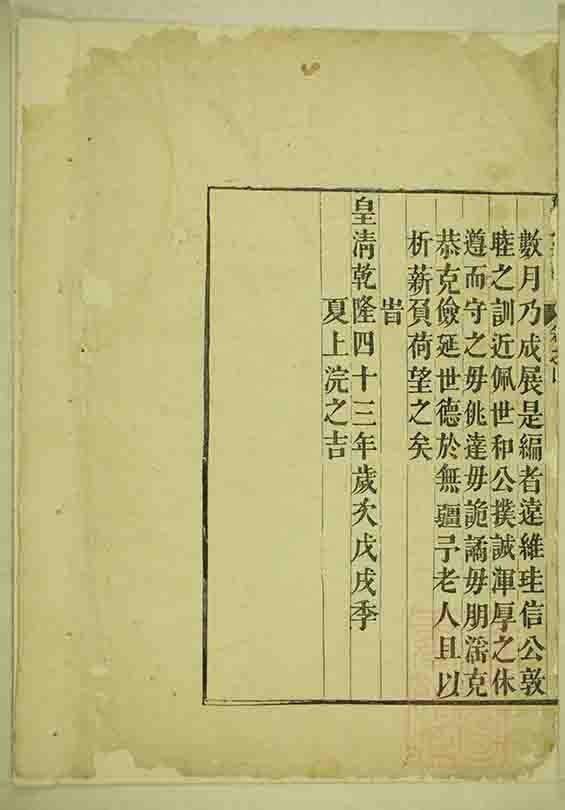 數月乃成展是編者遠維珪信公敦
睦之訓近佩世和公撲誠渾厚之休
遵而守之毋佻達毋詭譎毋朋滛克
恭克儉延世德於無疆予老人且以
析薪負荷望之矣
旹
皇清乾隆四十三年歲次戊戌季
夏上浣之吉